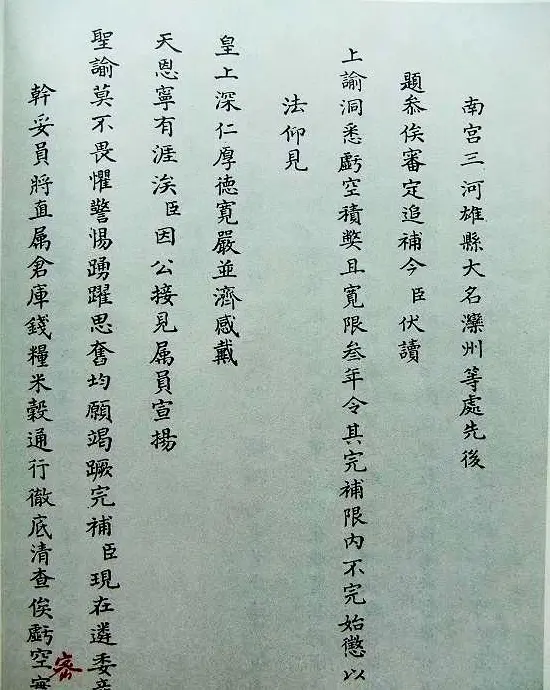 南宮三河雄縣大名灤州等處先後
題叅俟審定追補今臣伏讀
上諭洞悉虧空積獘且寬限叁年令其完補限內不完始懲以
法仰見
皇上深仁厚德寬嚴並濟感戴
天恩寧有涯涘臣因公接見属員宣揚
聖諭莫不畏懼警惕踴躍思奮均願竭蹶完補臣現在遴委
幹妥員將直属倉庫錢糧米穀通行徹底清查俟虧空
密